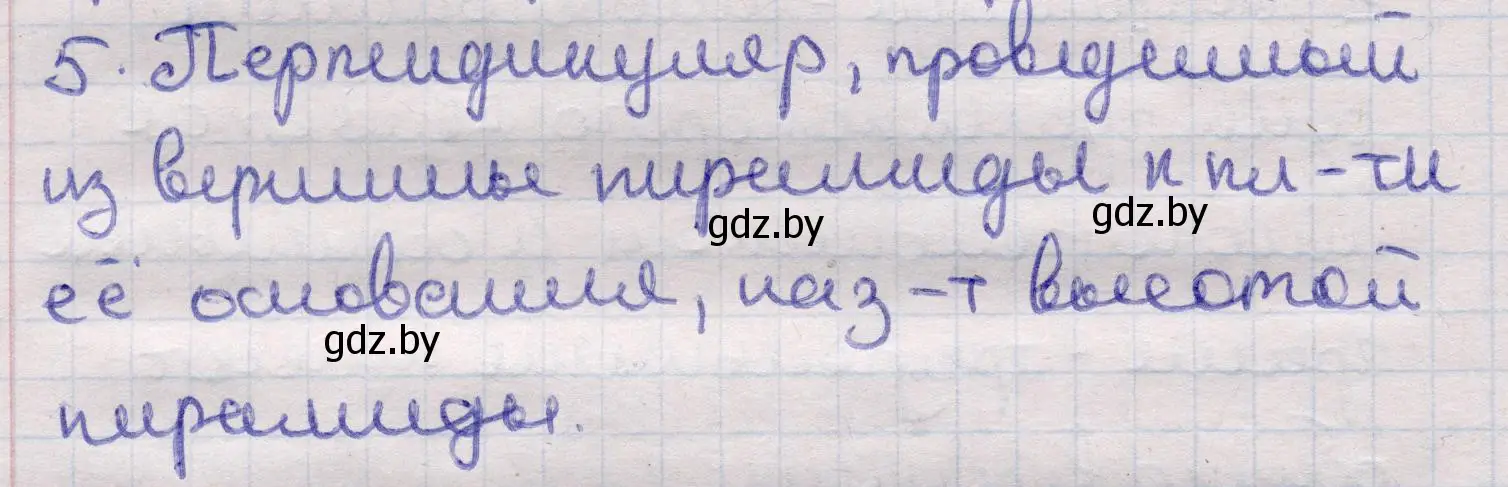 5. Перпендикуляр, проведенный
из вершины пирамиды к пл-ти
gdz.by
gdz.by
её основания, наз-т высотой
gdz.by
пирамиды.